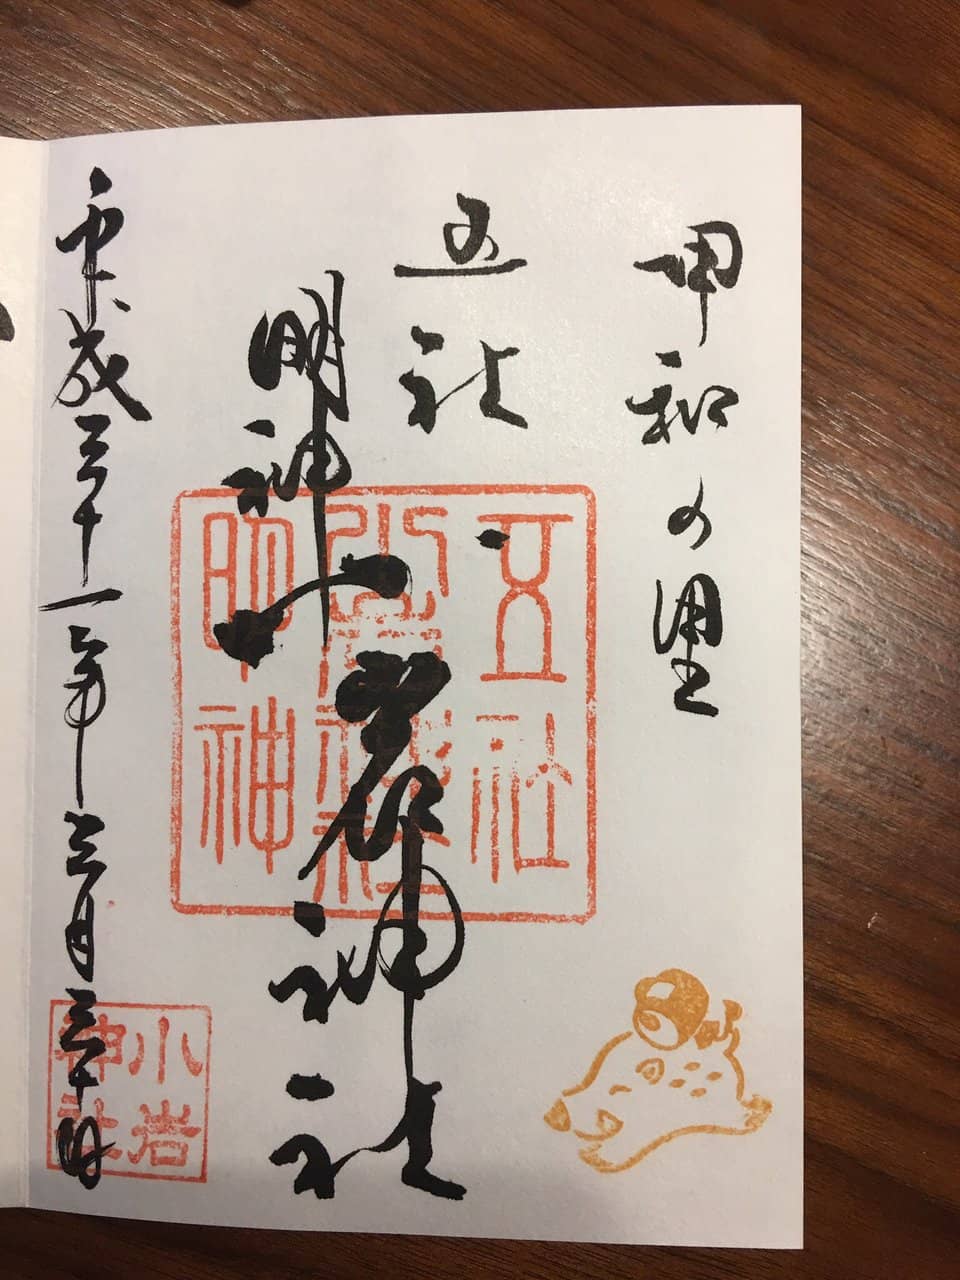 甲和の里
五社
明神
小岩神社
平成三十一年三月三十日
五社
小岩神社
明神
小岩
神社